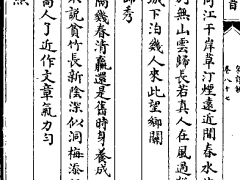 江干岸草汀煙遠近間春水
無山雲歸長若真人在風過
城下泊幾人來此望鄉關
師秀
隔幾春清羸還是舊時身養成
說貧竹長新陰深似洞梅添
高人了近作文章氣力勻
卷八十七